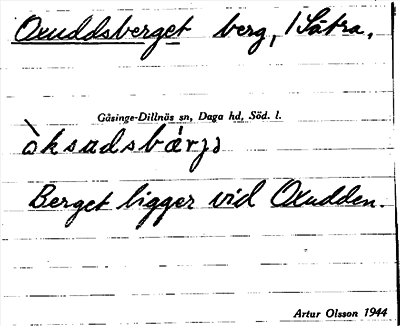 Oxuddsberget berg, / Sätra.
Gåsinge-Dillnäs sn, Daga hd, Söd. l.
òksudsbǽrjə
Berget ligger vid Oxudden.
Artur Olsson 1944